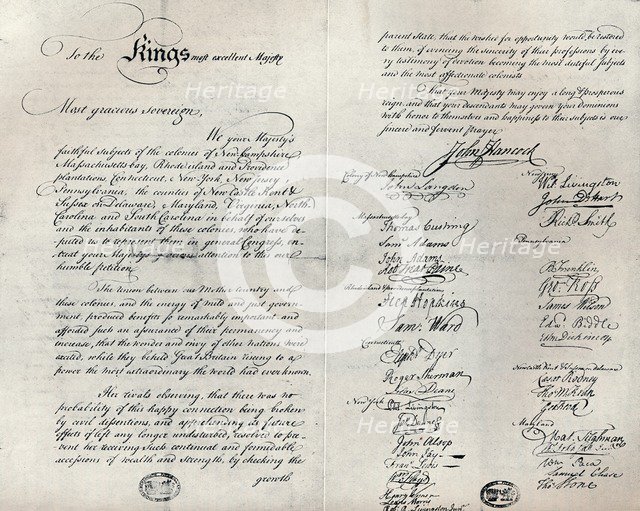 To the Kings most excellent Majesty
Most gracious Sovereign,
We your Majesty's
faithful subjects of the colonies of New Hampshire,
Massachusetts bay, Rhode island and Providence
plantations, Connecticut, New-York, New Jersey,
Pennsylvania, the counties of New Castle Kent &
Sussex on Delaware, Maryland, Virginia, North
Carolina and South Carolina in behalf of ourselves
and the inhabitants of these colonies, who have de-
puted us to represent them in general Congress, en-
treat your Majesty's gracious attention to this our
humble petition.
The union between our Mother Country and
these colonies, and the energy of mild and just govern-
ment, produced benefits so remarkably important and
afforded such an assurance of their permanency and
increase, that the wonder and envy of other nations were
excited, while they beheld Great Britain riseing to a
power the most extraordinary the world had ever known.
Her rivals observing, that there was no
probability of this happy connection being broken
by civil dissentions, and apprehending its future
effects if left any longer undisturbed, resolved to pre-
vent her receiving such continual and formidable
accessions of wealth and strength, by checking the
growth
parent State, that the wished for opportunity would be restored
to them, of evincing the sincerity of their professions by eve-
ry testimony of devotion becoming the most dutiful subjects
and the most affectionate colonists.
That your Majesty may enjoy a long & prosperous
reign, and that your descendants may govern your dominions
with honor to themselves and happiness to their subjects is our
sincere and fervent prayer.
John Hancock
Colony of New Hampshire
John Langdon
Massachusetts bay
Thomas Cushing
Saml Adams
John Adams
Robt Treat Paine
Step Hopkins
Sam: Ward
Connecticut
Elipht Dyer
Roger Sherman
Silas Deane
New York
Phil. Livingston
Jas Duane
John Alsop
John Jay
Fran: Lewis
Wm Floyd
Lewis Morris
Robt R Livingston Junr
New Jersey
Wil: Livingston
John D Hart
Richd Smith
Pennsylvania
B Franklin
Geo: Ross
James Wilson
Edwd Biddle
Caesar Rodney
Tho M:Kean
Geo Read
Maryland
Mat. Tilghman
Wm Paca
Samuel Chase
Thos Stone
Heritage
Heritage
Heritage
Heritage
Heritage